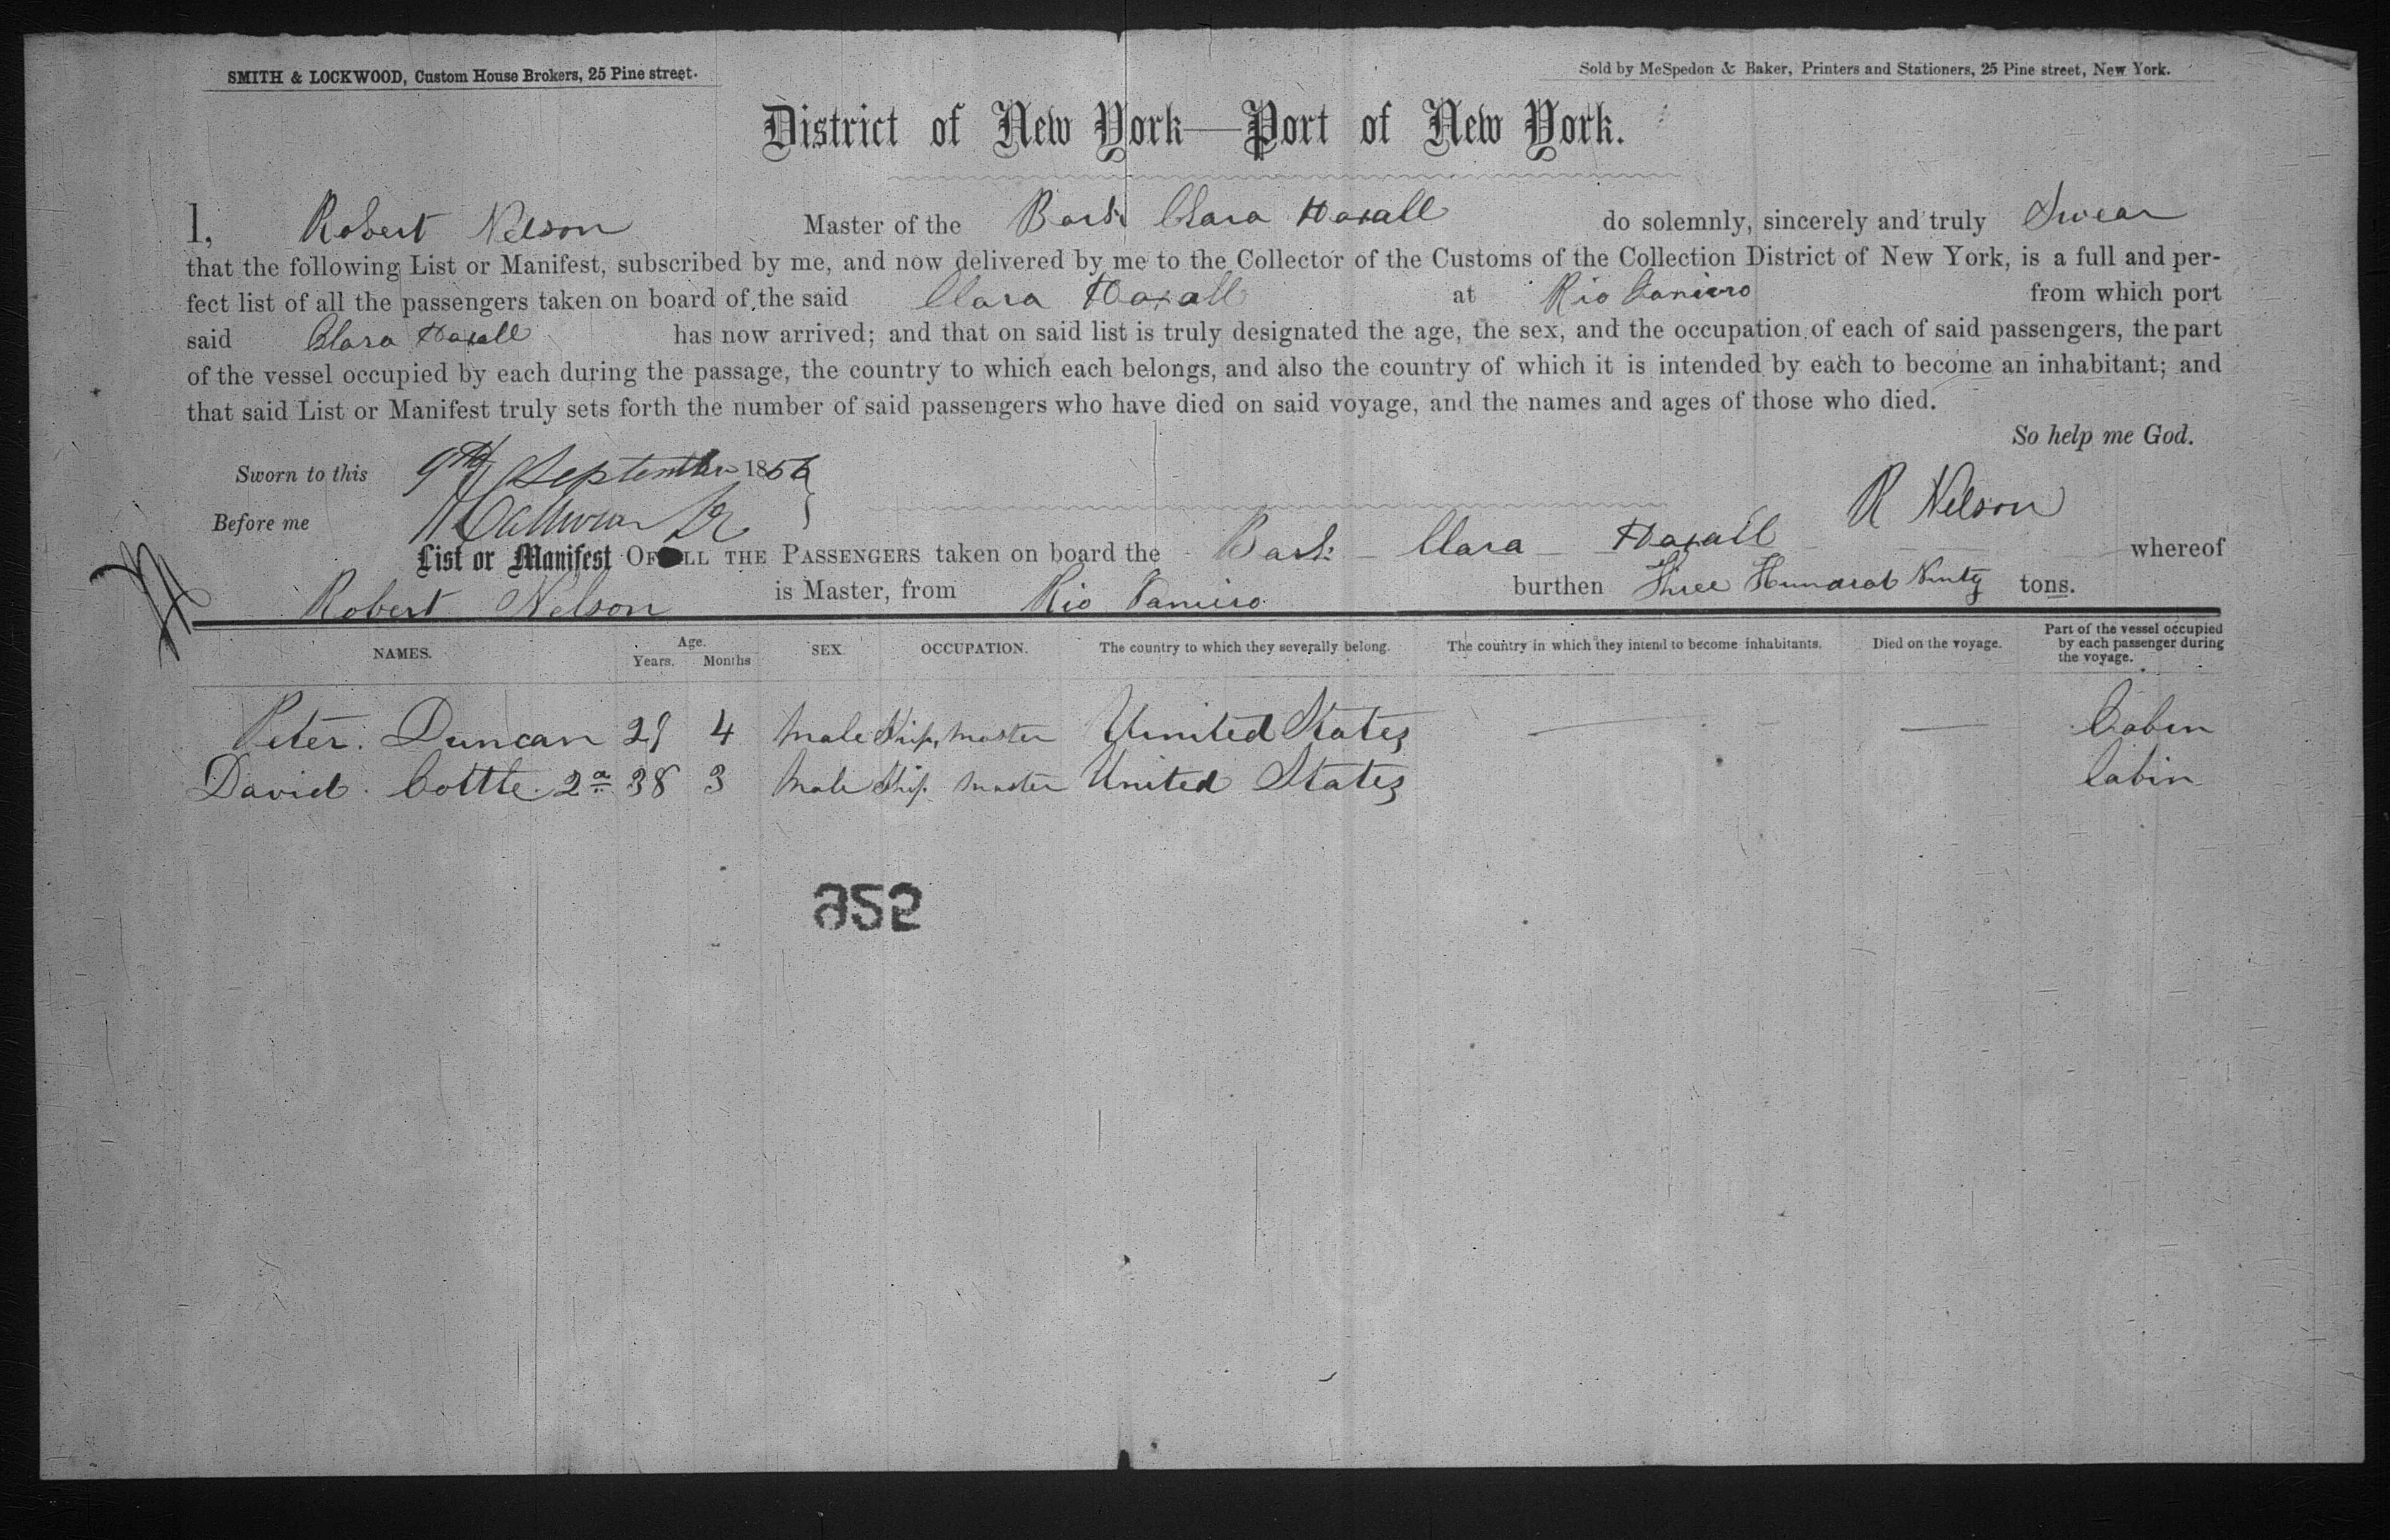 SMITH & LOCKWOOD, Custom House Brokers, 25 Pine street.
Sold by McSpedon & Baker, Printers and Stationers, 25 Pine street, New York.
District of New York—Port of New York.
I, Robert Nelson Master of the Bark Clara Haxall do solemnly, sincerely and truly Swear
that the following List or Manifest, subscribed by me, and now delivered by me to the Collector of the Customs of the Collection District of New York, is a full and per-
fect list of all the passengers taken on board of the said Clara Haxall at Rio Janeiro from which port
said Clara Haxall has now arrived; and that on said list is truly designated the age, the sex, and the occupation of each of said passengers, the part
of the vessel occupied by each during the passage, the country to which each belongs, and also the country of which it is intended by each to become an inhabitant; and
that said List or Manifest truly sets forth the number of said passengers who have died on said voyage, and the names and ages of those who died.
So help me God.
Sworn to this 9th September 1856
Before me
R Nelson
List or Manifest OF ALL THE PASSENGERS taken on board the Bark Clara Haxall whereof
Robert Nelson is Master, from Rio Janeiro burthen Three Hundred Ninty tons.
NAMES. Age. Years. Months SEX. OCCUPATION. The country to which they severally belong. The country in which they intend to become inhabitants. Died on the voyage. Part of the vessel occupied by each passenger during the voyage.
Peter. Duncan 29 4 Male Ship master United States — — Cabin
David. Cottle. 2d 38 3 Male Ship master United States Cabin
952